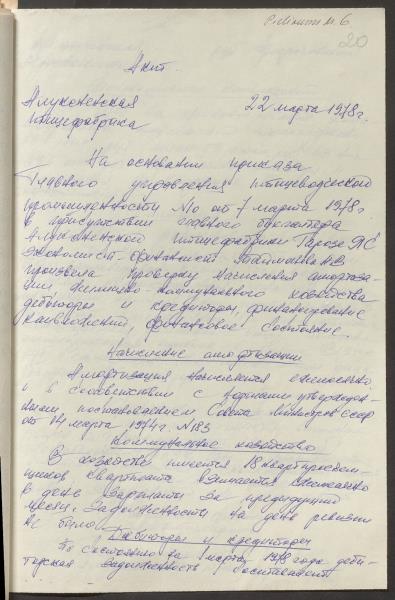 20
Акт.
22 марта 1978 г.
Алуксненская
птицефабрика
На основании приказа
Главного управления птицеводческой
промышленности №10 от 7 марта 1978 г.
в присутствии главного бухгалтера
Алуксненской птицефабрики
экономист-финансист
произвела проверку начисления амортиза-
ции, жилищно-коммунального хозяйства
дебиторы и кредиторы, финансирование
капвложений, финансовое состояние.
Начисление амортизации
Амортизация начисляется ежемесячно
в соответствии с нормами утвержден-
ными постановлением Совета Министров СССР
от 14 марта 1974 г. №183
Коммунальное хозяйство
В хозяйстве имеется 18 квартиросъем-
щиков квартплата взимается ежемесячно
в день зарплаты за предыдущий
месяц. Задолженности на день ревизии
не было.
Дебиторы и кредиторы
По состоянию на марта 1978 года деби-
торская задолженность составляет